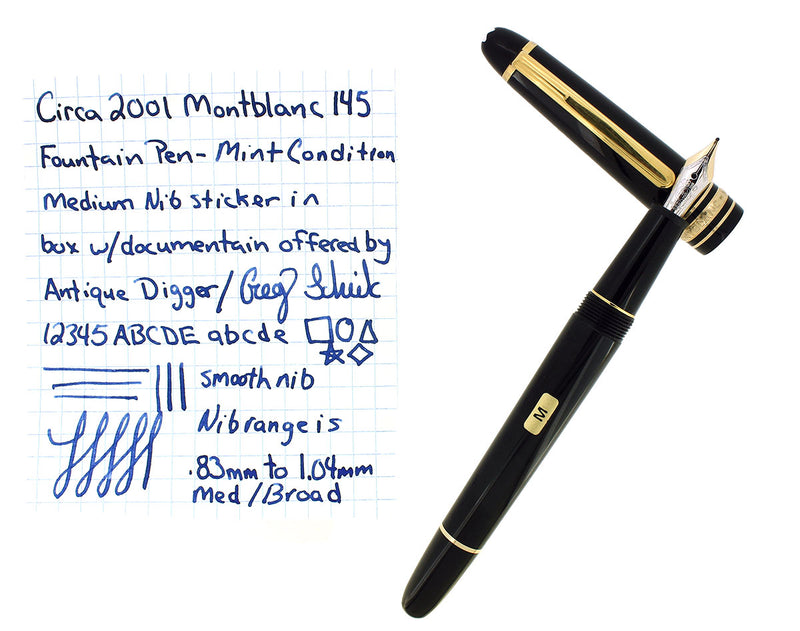 Circa 2001 Montblanc 145
Fountain Pen- Mint Condition
Medium Nib sticker in
box w/documentain offered by
Antique Digger/ Greg Schick
12345 ABCDE abcde
smooth nib
Nib range is
.83mm to 1.04mm
Med/Broad
M